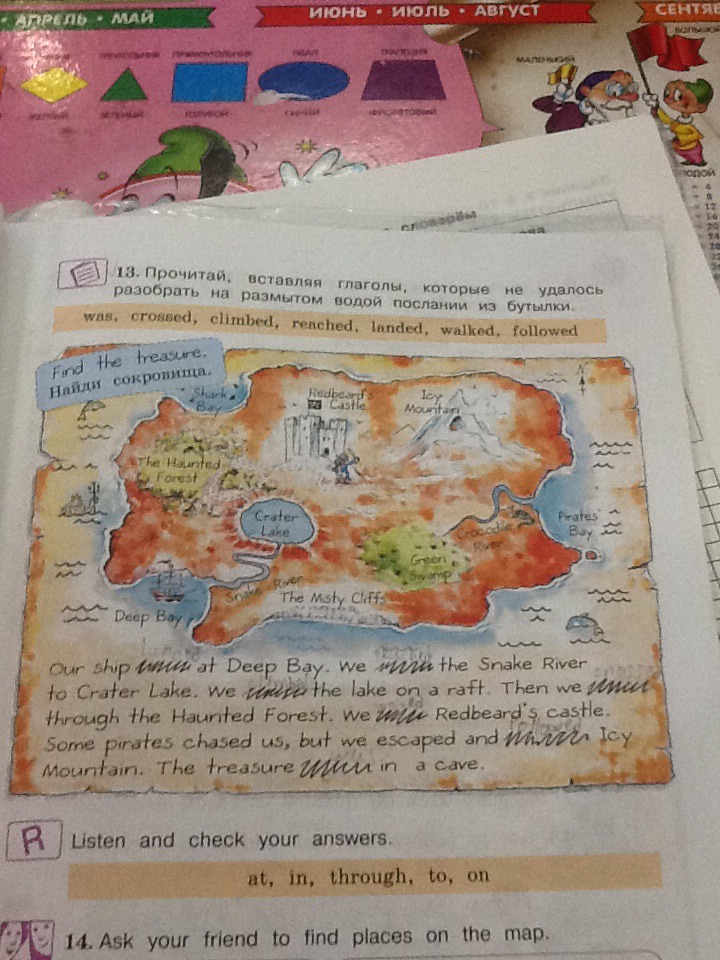 АПРЕЛЬ • МАЙ
ИЮНЬ • ИЮЛЬ • АВГУСТ
СЕНТЯ
ТРЕУГОЛЬНИК
ПРЯМОУГОЛЬНИК
ОВАЛ
ТРАПЕЦИЯ
ЖЕЛТЫЙ
ЗЕЛЕНЫЙ
ГОЛУБОЙ
СИНИЙ
ФИОЛЕТОВЫЙ
МАЛЕНЬКИЙ
словарём
13. Прочитай, вставляя глаголы, которые не удалось
разобрать на размытом водой послании из бутылки.
was, crossed, climbed, reached, landed, walked, followed
Find the treasure.
Найди сокровища.
N
Shark
Bay
Redbeard's
Castle
Icy
Mountain
The Haunted
Forest
Crater
Lake
Pirates'
Bay
Crocodile
River
Green
Swamp
Snake River
The Misty Cliffs
Deep Bay
Our ship at Deep Bay. We the Snake River
to Crater Lake. We the lake on a raft. Then we
through the Haunted Forest. We Redbeard's castle.
Some pirates chased us, but we escaped and Icy
Mountain. The treasure in a cave.
R Listen and check your answers.
at, in, through, to, on
14. Ask your friend to find places on the map.